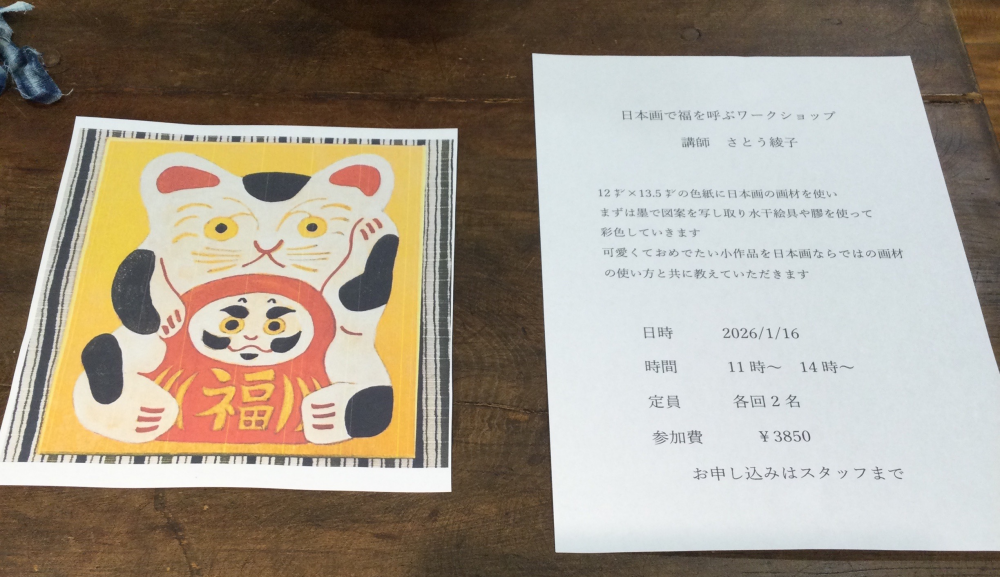 福
日本画で福を呼ぶワークショップ
講師 さとう綾子
12㌢×13.5㌢の色紙に日本画の画材を使い
まずは墨で図案を写し取り水干絵具や膠を使って
彩色していきます
可愛くておめでたい小作品を日本画ならではの画材
の使い方と共に教えていただきます
日時 2026/1/16
時間 11時〜 14時〜
定員 各回2名
参加費 ¥3850
お申し込みはスタッフまで